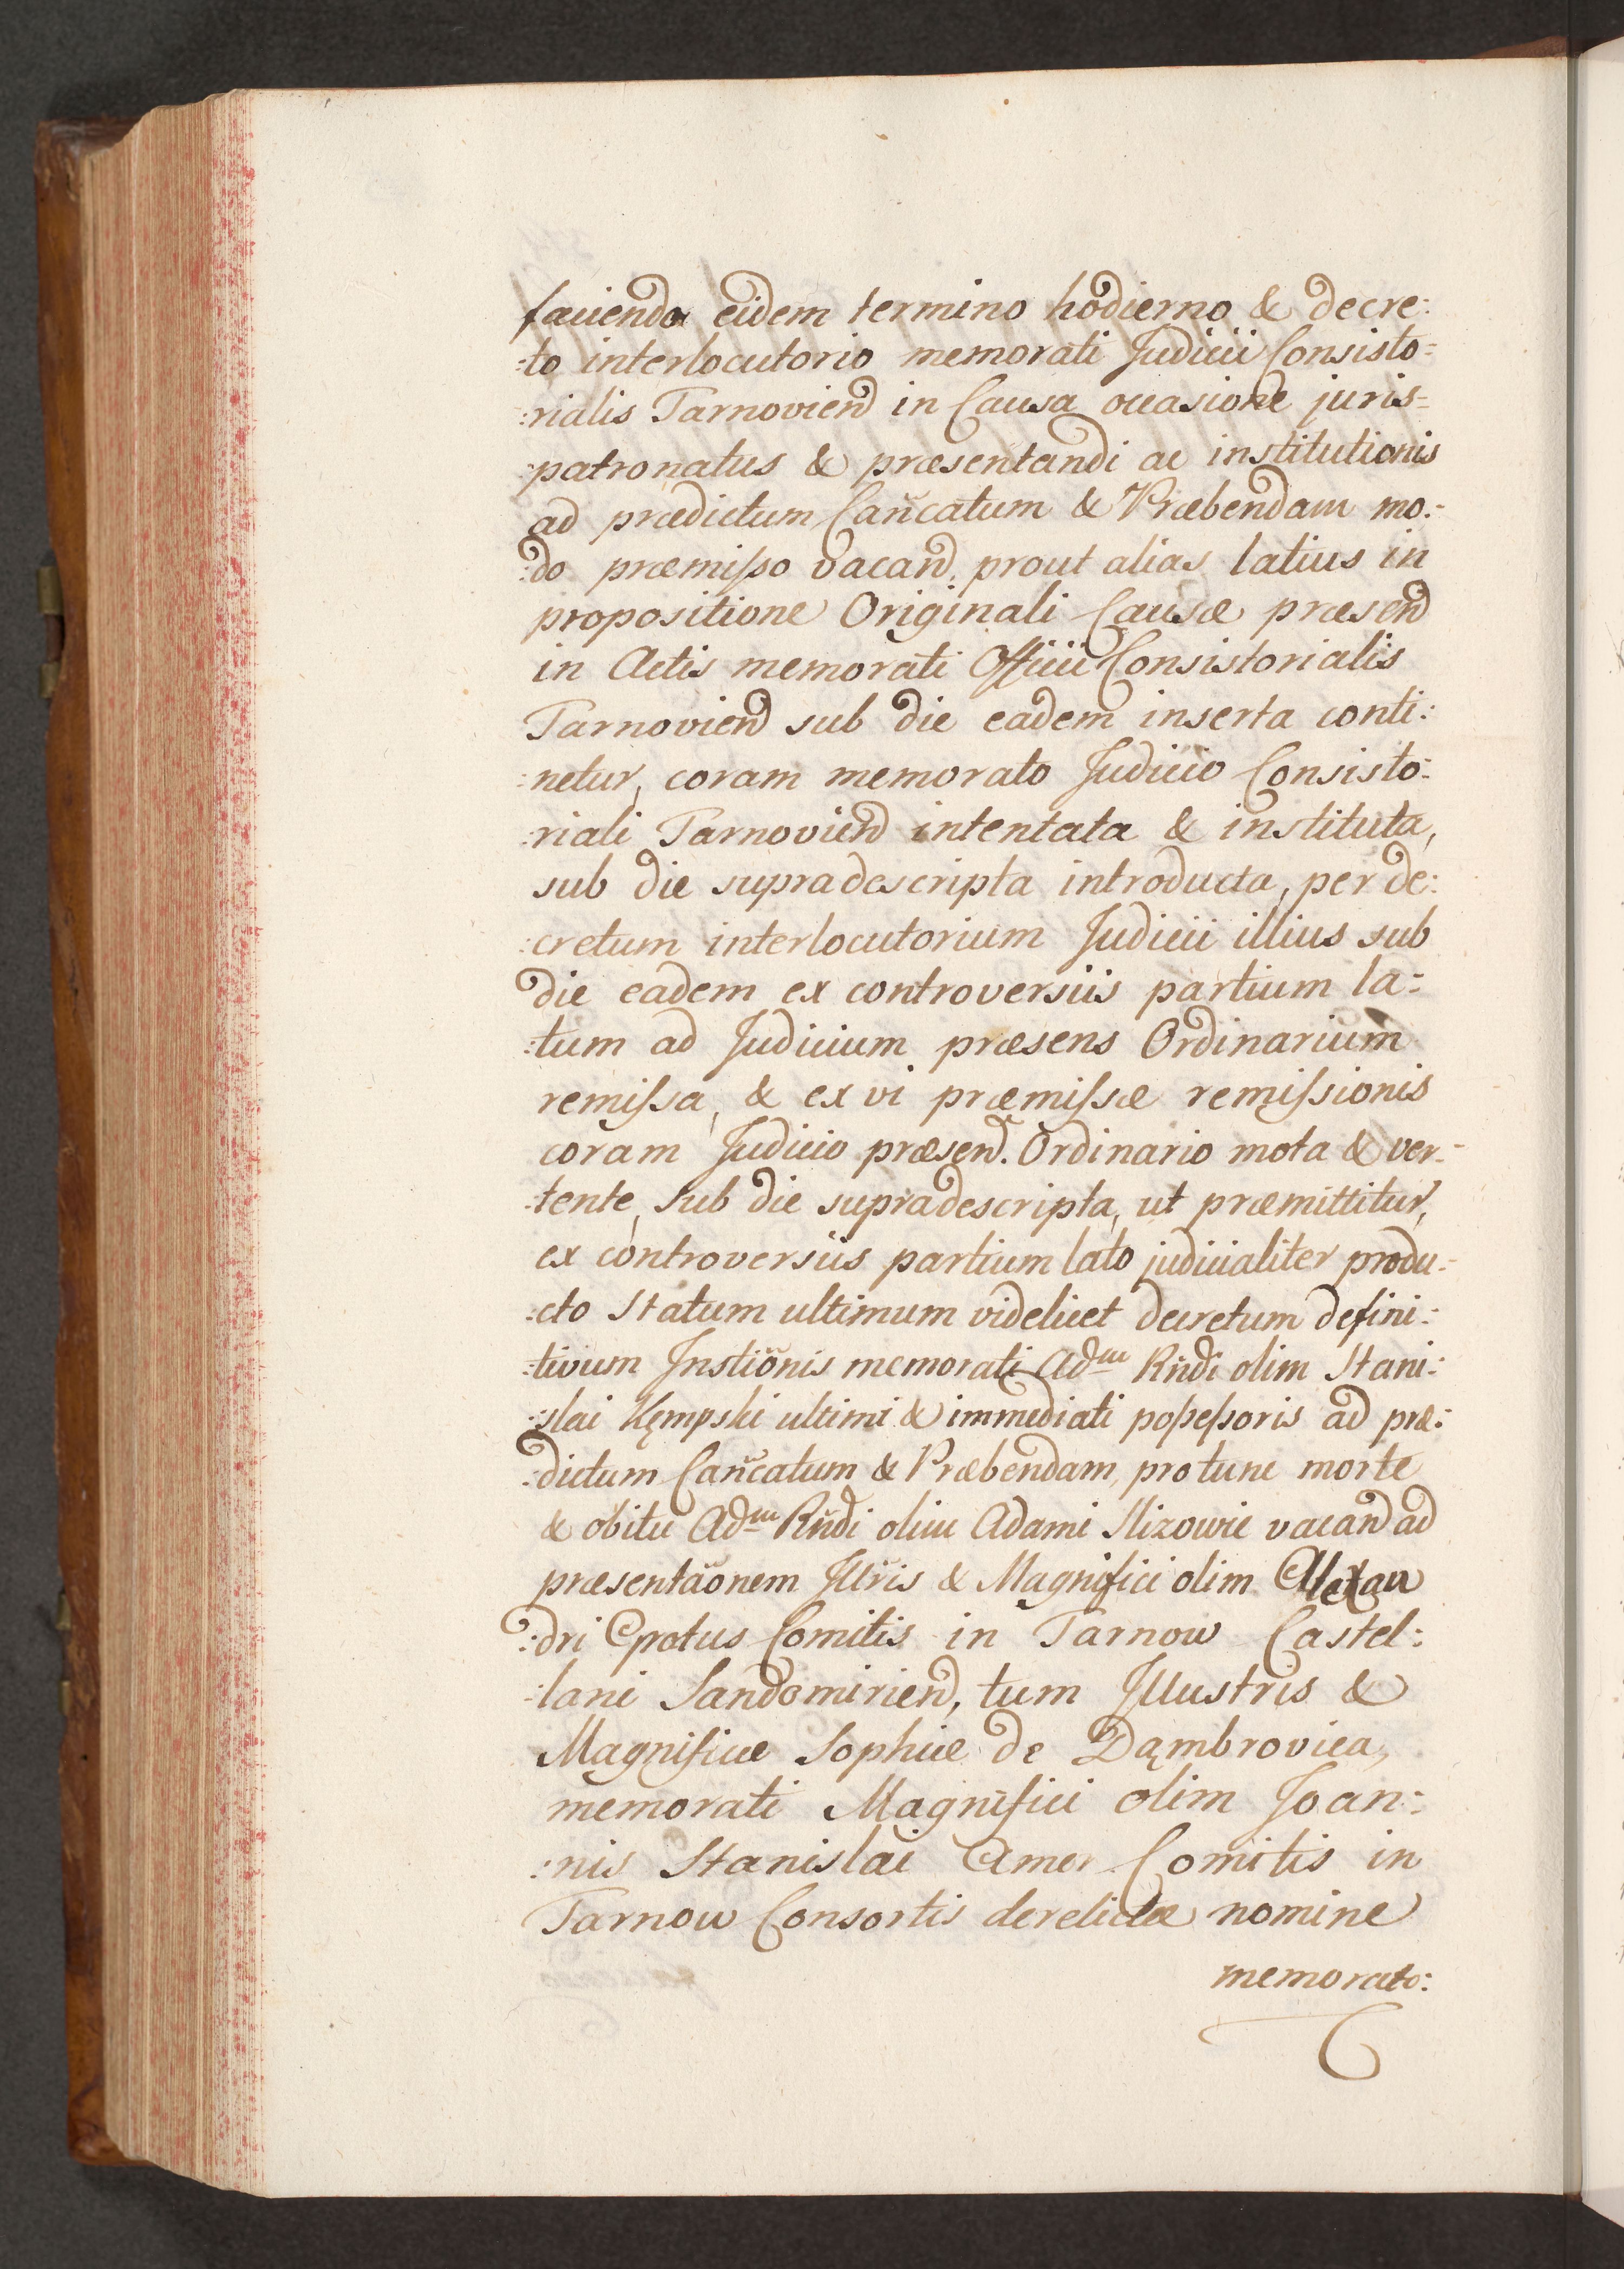 faciendo eidem termino hodierno & decre:
:to interlocutorio memorati Judicii Consisto:
:rialis Tarnovien in Causa occasione juris=
:patronatus & præsentandi ac institutionis
ad prædictum Cañcatum & Præbendam mo:
:do præmisso vacan. prout alias latius in
propositione Originali Causæ præsen
in Actis memorati Officii Consistorialis
Tarnovien sub die eadem inserta conti:
:netur, coram memorato Judicio Consisto:
:riali Tarnovien intentata & instituta,
sub die supradescripta introducta, per de:
:cretum interlocutorium Judicii illius sub
die eadem ex controversiis partium la:
:tum ad Judicium præsens Ordinarium
remissa, & ex vi præmissæ remissionis
coram Judicio præsen. Ordinario mota & ver:
:tente, sub die supradescripta, ut præmittitur,
ex controversiis partium lato judicialiter produ:
:cto Statum ultimum videlicet decretum defini:
:tivum Instiõnis memorati Adm Rñdi olim Stani:
:slai Kępski ultimi & immediati possessoris ad præ:
:dictum Cañcatum & Præbendam, protunc morte
& obitu Adm Rñdi olim Adami Slizowic vacan ad
præsentãonem Illris & Magnifici olim Alexan
:dri Cpotus Comitis in Tarnow Castel:
:lani Sandomirien, tum Illustris &
Magnificæ Sophiæ de Dąmbrovica,
memorati Magnifici olim Joan:
:nis Stanislai Amor Comitis in
Tarnow Consortis derelictæ nomine
memorato: